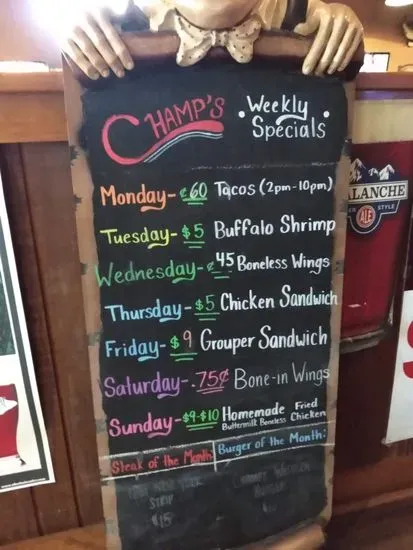 CHAMP'S
• Weekly Specials •
Monday - ¢60 Tacos (2pm-10pm)
Tuesday - $5 Buffalo Shrimp
Wednesday - ¢45 Boneless Wings
Thursday - $5 Chicken Sandwich
Friday - $9 Grouper Sandwich
Saturday - .75¢ Bone-in Wings
Sunday - $9-$10 Homemade Fried Chicken
Buttermilk Boneless
Steak of the Month:
Burger of the Month:
STRIP
$15
AVALANCHE
ALE
STYLE